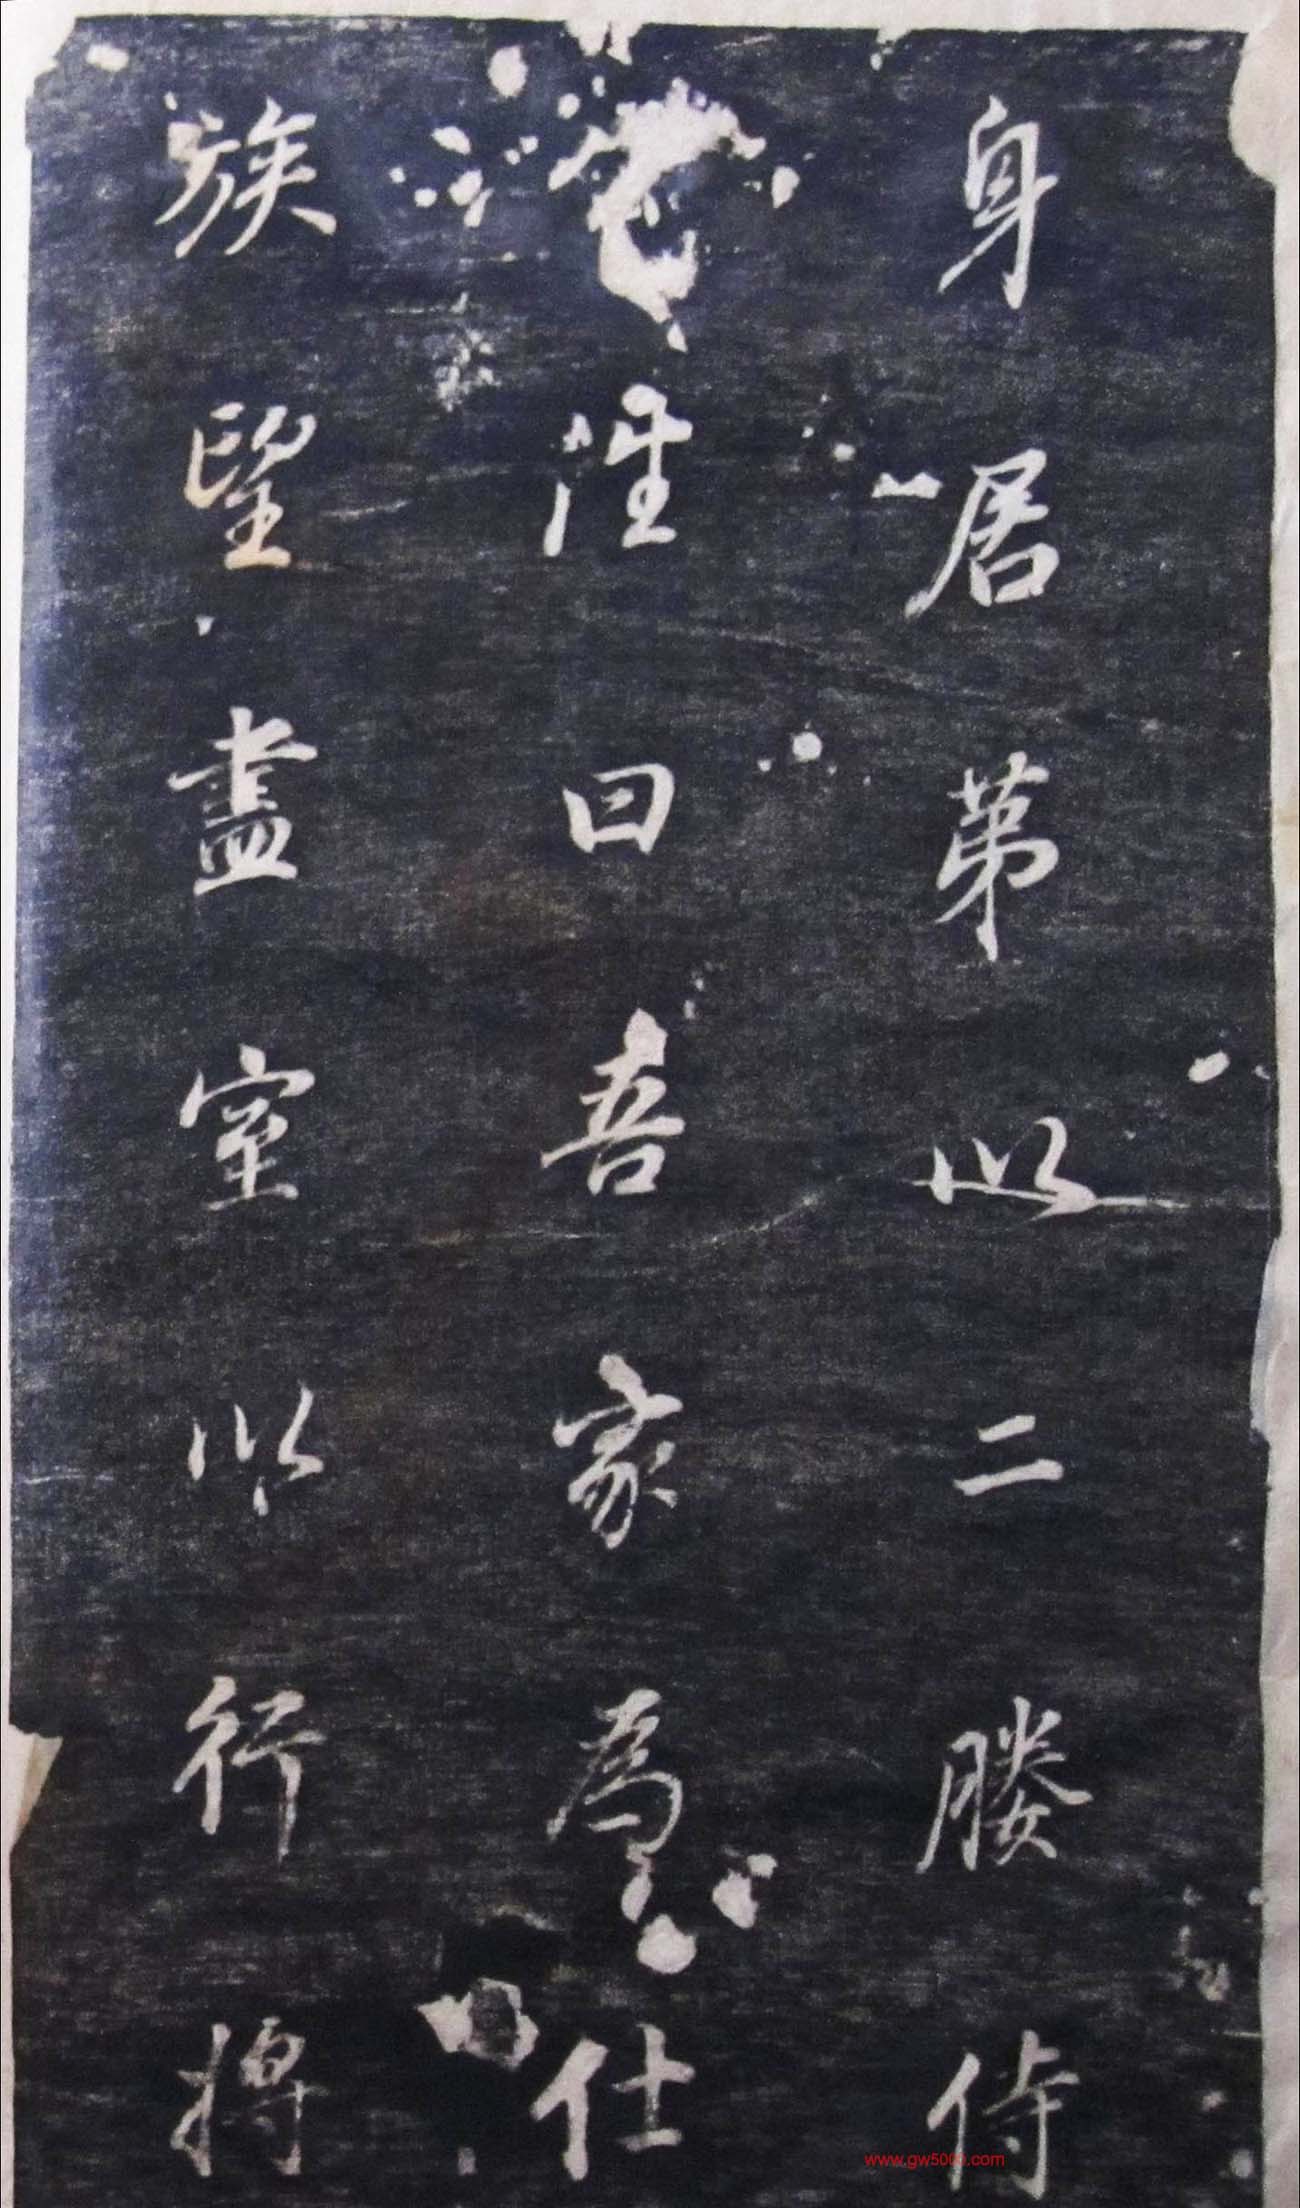 身居第以二媵侍
性曰吾家為仕
族望盡室以行將
www.gw500.com